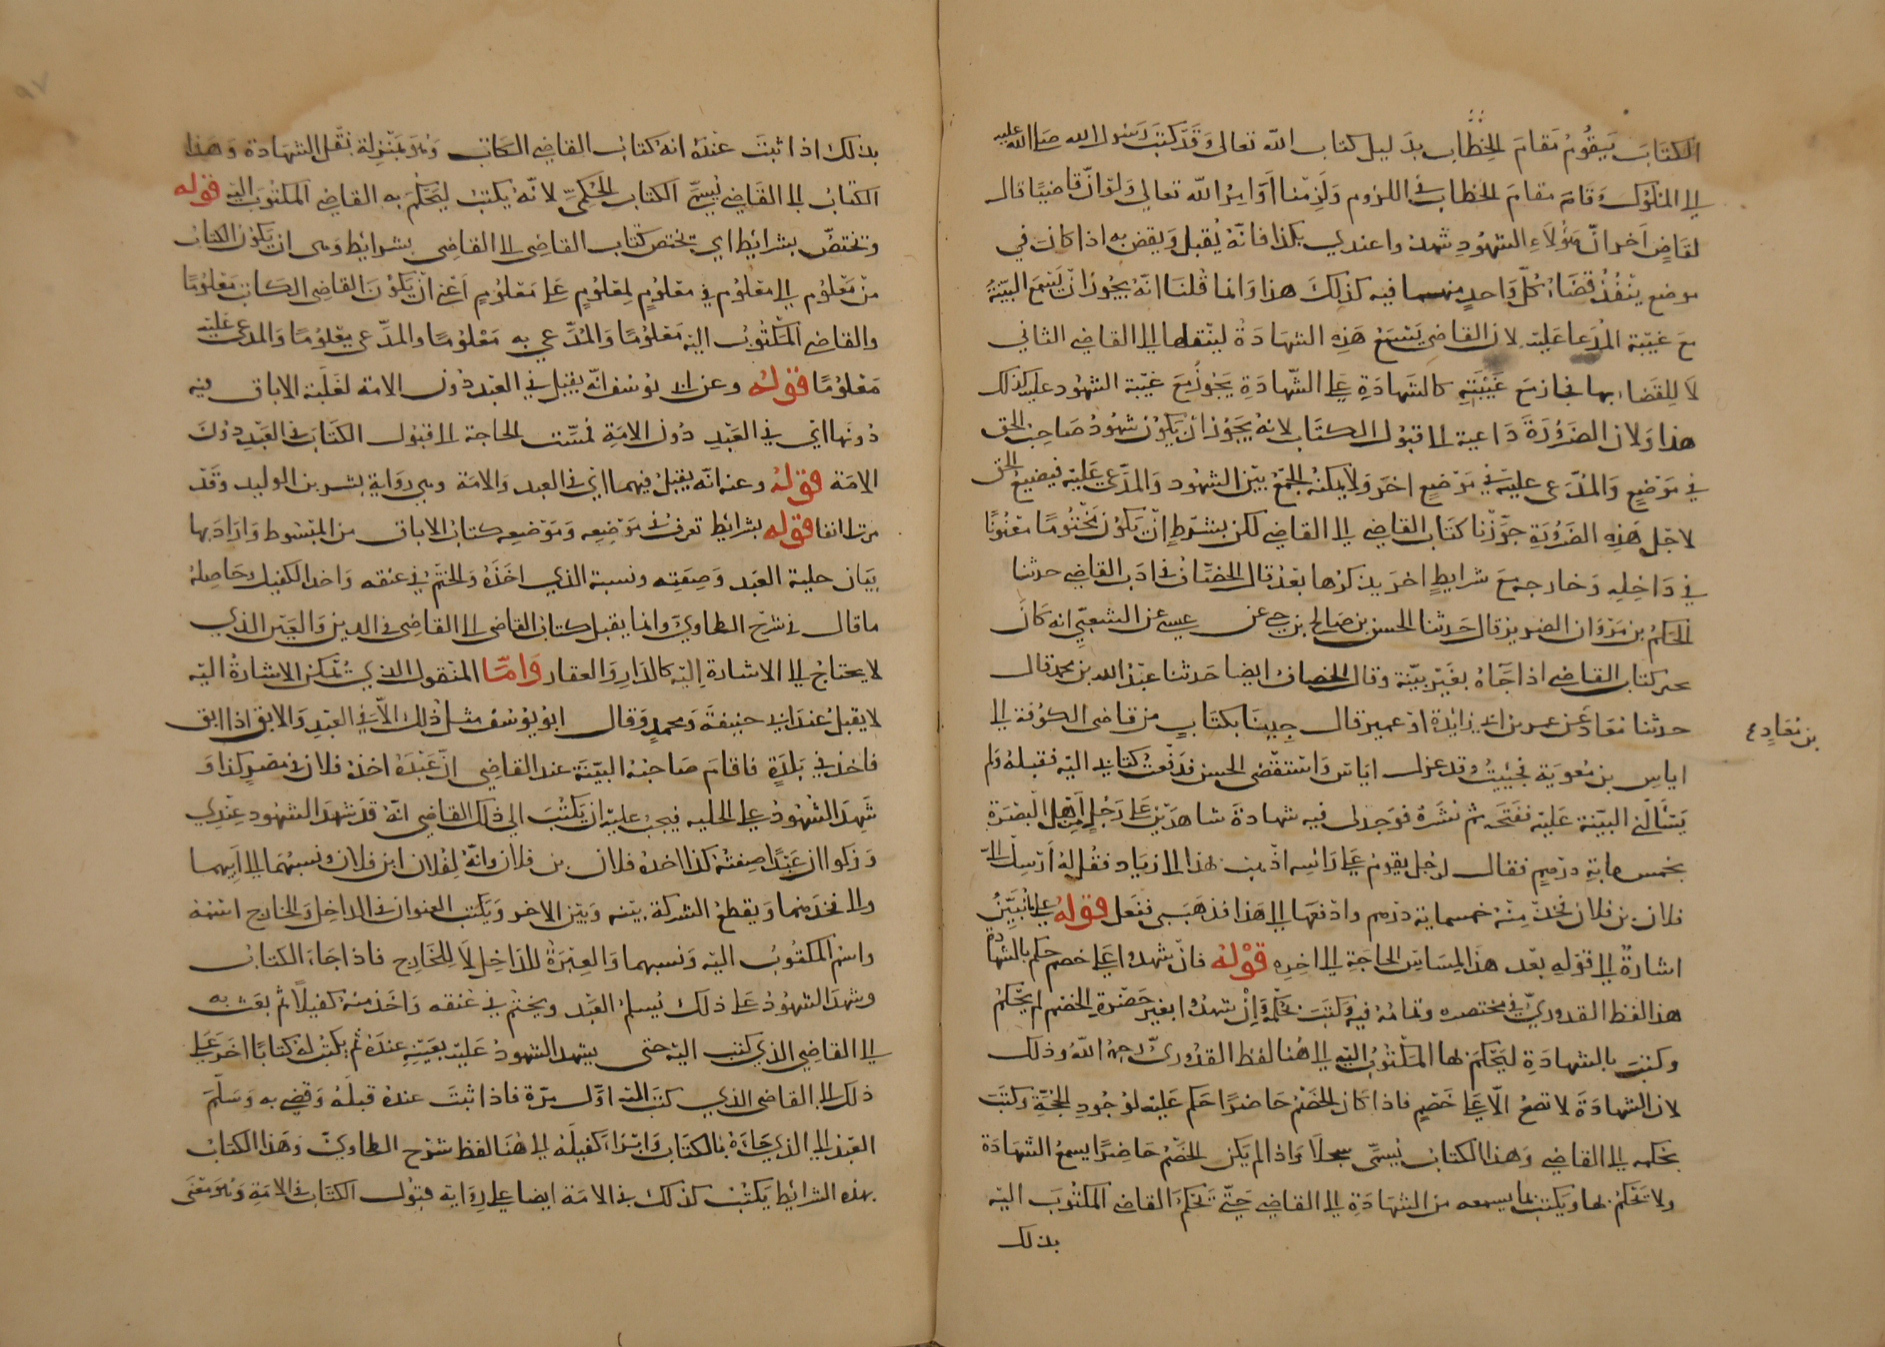 الكتاب يقوم مقام الخطاب بدليل كتاب الله تعالى وقد كتب رسول الله صلى الله عليه
الى الملوك وقام مقام الخطاب في اللزوم ولزمنا اوامر الله تعالى ولو ان قاضيا قال
لقاض اخر ان هؤلاء الشهود شهدوا عندي بكذا فانه يقبل ويقضى به اذا كانت في
موضع ينفذ قضاء كل واحد منهما فيه كذلك هذا وانما قلنا انه يجوز ان يسمع البينة
مع غيبة المدعا عليه لان القاضي يسمع هذه الشهادة لينقلها الى القاضي الثاني
لا للقضاء بها فجاز مع غيبته كالشهادة على الشهادة يجوز مع غيبة الشهود عليه كذلك
هذا ولان الضرورة داعية الى قبول الكتاب لانه يجوز ان يكون شهود صاحب الحق
في موضع والمدعى عليه في موضع اخر ولا يمكنه الجمع بين الشهود والمدعى عليه فيضيع الحق
لاجل هذه الضرورة جوزنا كتاب القاضي الى القاضي لكن بشرط ان يكون مختوما معنونا
في داخله وخارجه مع شرايط اخر يذكرها بعد قال الخصاف في ادب القاضي حدثنا
الحكم بن مروان الضرير قال حدثنا الحسن بن صالح بن حي عن عيسى عن الشعبي انه كان
يجيز كتاب القاضي اذا جاه بغير بينة وقال الخصاف ايضا حدثنا عبد الله بن محمد قال
حدثنا معاذ عن عمر بن ابي زايدة او عمير قال جينا بكتاب من قاضي الكوفة الى
بن معاذ
اياس بن معوية فجيت وقد عزل اياس واستقضى الحسن فدفعت كتابي اليه فقبله ولم
يسألني البينة عليه ففتحه ثم نشره فوجد لي فيه شهادة شاهدين على رجل من اهل البصرة
بخمس ماية درهم فقال لرجل يقوم على رأسه اذهب بهذا الى زياد فقل له ارسل الى
فلان بن فلان فخذ منه خمسماية درهم وادفعها الى هذا فذهب بي ففعل قوله على ما نبين
اشارة الى قوله بعد هذا لمساس الحاجة الى اخره قوله فان شهدوا على خصم حكم بالشهادة
هذا لفظ القدوري في مختصره وتمامه فيه وكتب بحكمه وان شهدوا بغير حضرة الخصم لم يحكم
وكتب بالشهادة ليحكم لها المكتوب اليه الى هنا لفظ القدوري رحمه الله وذلك
لان الشهادة لا تصح الا على خصم فاذا كان الخصم حاضرا حكم عليه لوجود الحجة وكتب
بحكمه الى القاضي وهذا الكتاب يسمى سجلا واذا لم يكن الخصم حاضرا يسمع الشهادة
ولا تحكم بها ويكتب بما يسمعه من الشهادة الى القاضي حتى يحكم القاضي المكتوب اليه
بذلك
بذلك اذا ثبت عنده انه كتاب القاضي الكاتب وهو بمنزلة نقل الشهادة وهذا
الكتاب الى القاضي يسمى الكتاب الحكمي لانه يكتب ليحكم به القاضي المكتوب اليه قوله
وتختص بشرائط اي يختص كتاب القاضي الى القاضي بشرايط وهي ان يكون الكتاب
من معلوم الى معلوم في معلوم لمعلوم على معلوم اعني ان يكون القاضي الكاتب معلوما
والقاضي المكتوب اليه معلوما والمدعى به معلوما والمدعي معلوما والمدعى عليه
معلوما قوله وعن ابي يوسف انه يقبل في العبد دون الامة لغلبة الاباق فيه
دونها اي في العبد دون الامة فمست الحاجة الى قبول الكتاب في العبد دون
الامة قوله وعنه انه يقبل فيهما اي في العبد والامة وهي رواية بشر بن الوليد وقد
مر انفا قوله بشرائط تعرف في موضعه وموضعه كتاب الاباق من المبسوط واراد بها
بيان حلية العبد وصفته ونسبة الذي اخذه والختم في عنقه واخذ الكفيل وحاصله
ما قال في شرح الطحاوي وانما يقبل كتاب القاضي الى القاضي في الدين والعين الذي
لا يحتاج الى الاشارة اليه كالدار والعقار واما المنقول الذي تمكن الاشارة اليه
لا يقبل عند ابي حنيفة ومحمد وقال ابو يوسف مثل ذلك الا في العبد والابق اذا ابق
فاخذ في بلدة فاقام صاحبه البينة عند القاضي ان عبده اخذه فلان في مصر كذا و
شهد الشهود على الحلية فيجب عليه ان يكتب الى ذلك القاضي انه قد شهد الشهود عندي
وذكروا ان عبدا صفته كذا اخذه فلان بن فلان وانه لفلان ابن فلان وينسبهما الى ابيهما
والى فخذهما ويقطع الشركة بينه وبين الاخر ويكتب العنوان في الداخل والخارج اسمه
واسم المكتوب اليه ونسبهما والعبرة للداخل لا للخارج فاذا جاء الكتاب
وشهد الشهود على ذلك يسلم العبد ويختم في عنقه واخذ منه كفيلا ثم بعث به
الى القاضي الذي كتب اليه حتى يشهد الشهود عليه بعينه عنده ثم يكتب له كتابا اخر على
ذلك الى القاضي الذي كتب اليه اول مرة فاذا ثبت عنده قبله وقضى به وسلم
العبد الى الذي جاءه بالكتاب وابرا كفيله الى هنا لفظ شرح الطحاوي وهذا الكتاب
بهذه الشرائط يكتب كذلك في الامة ايضا على رواية قبول الكتاب في الامة وهو معنى